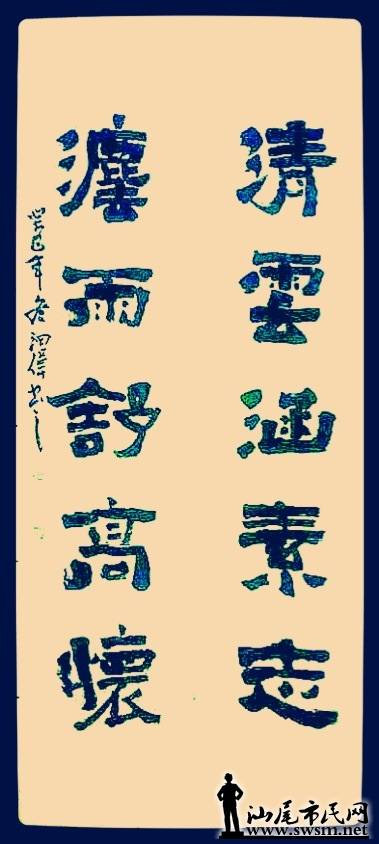 清雲涵素志
瀍雨舒高懷
癸巳年
汕尾市民网
www.swsm.net